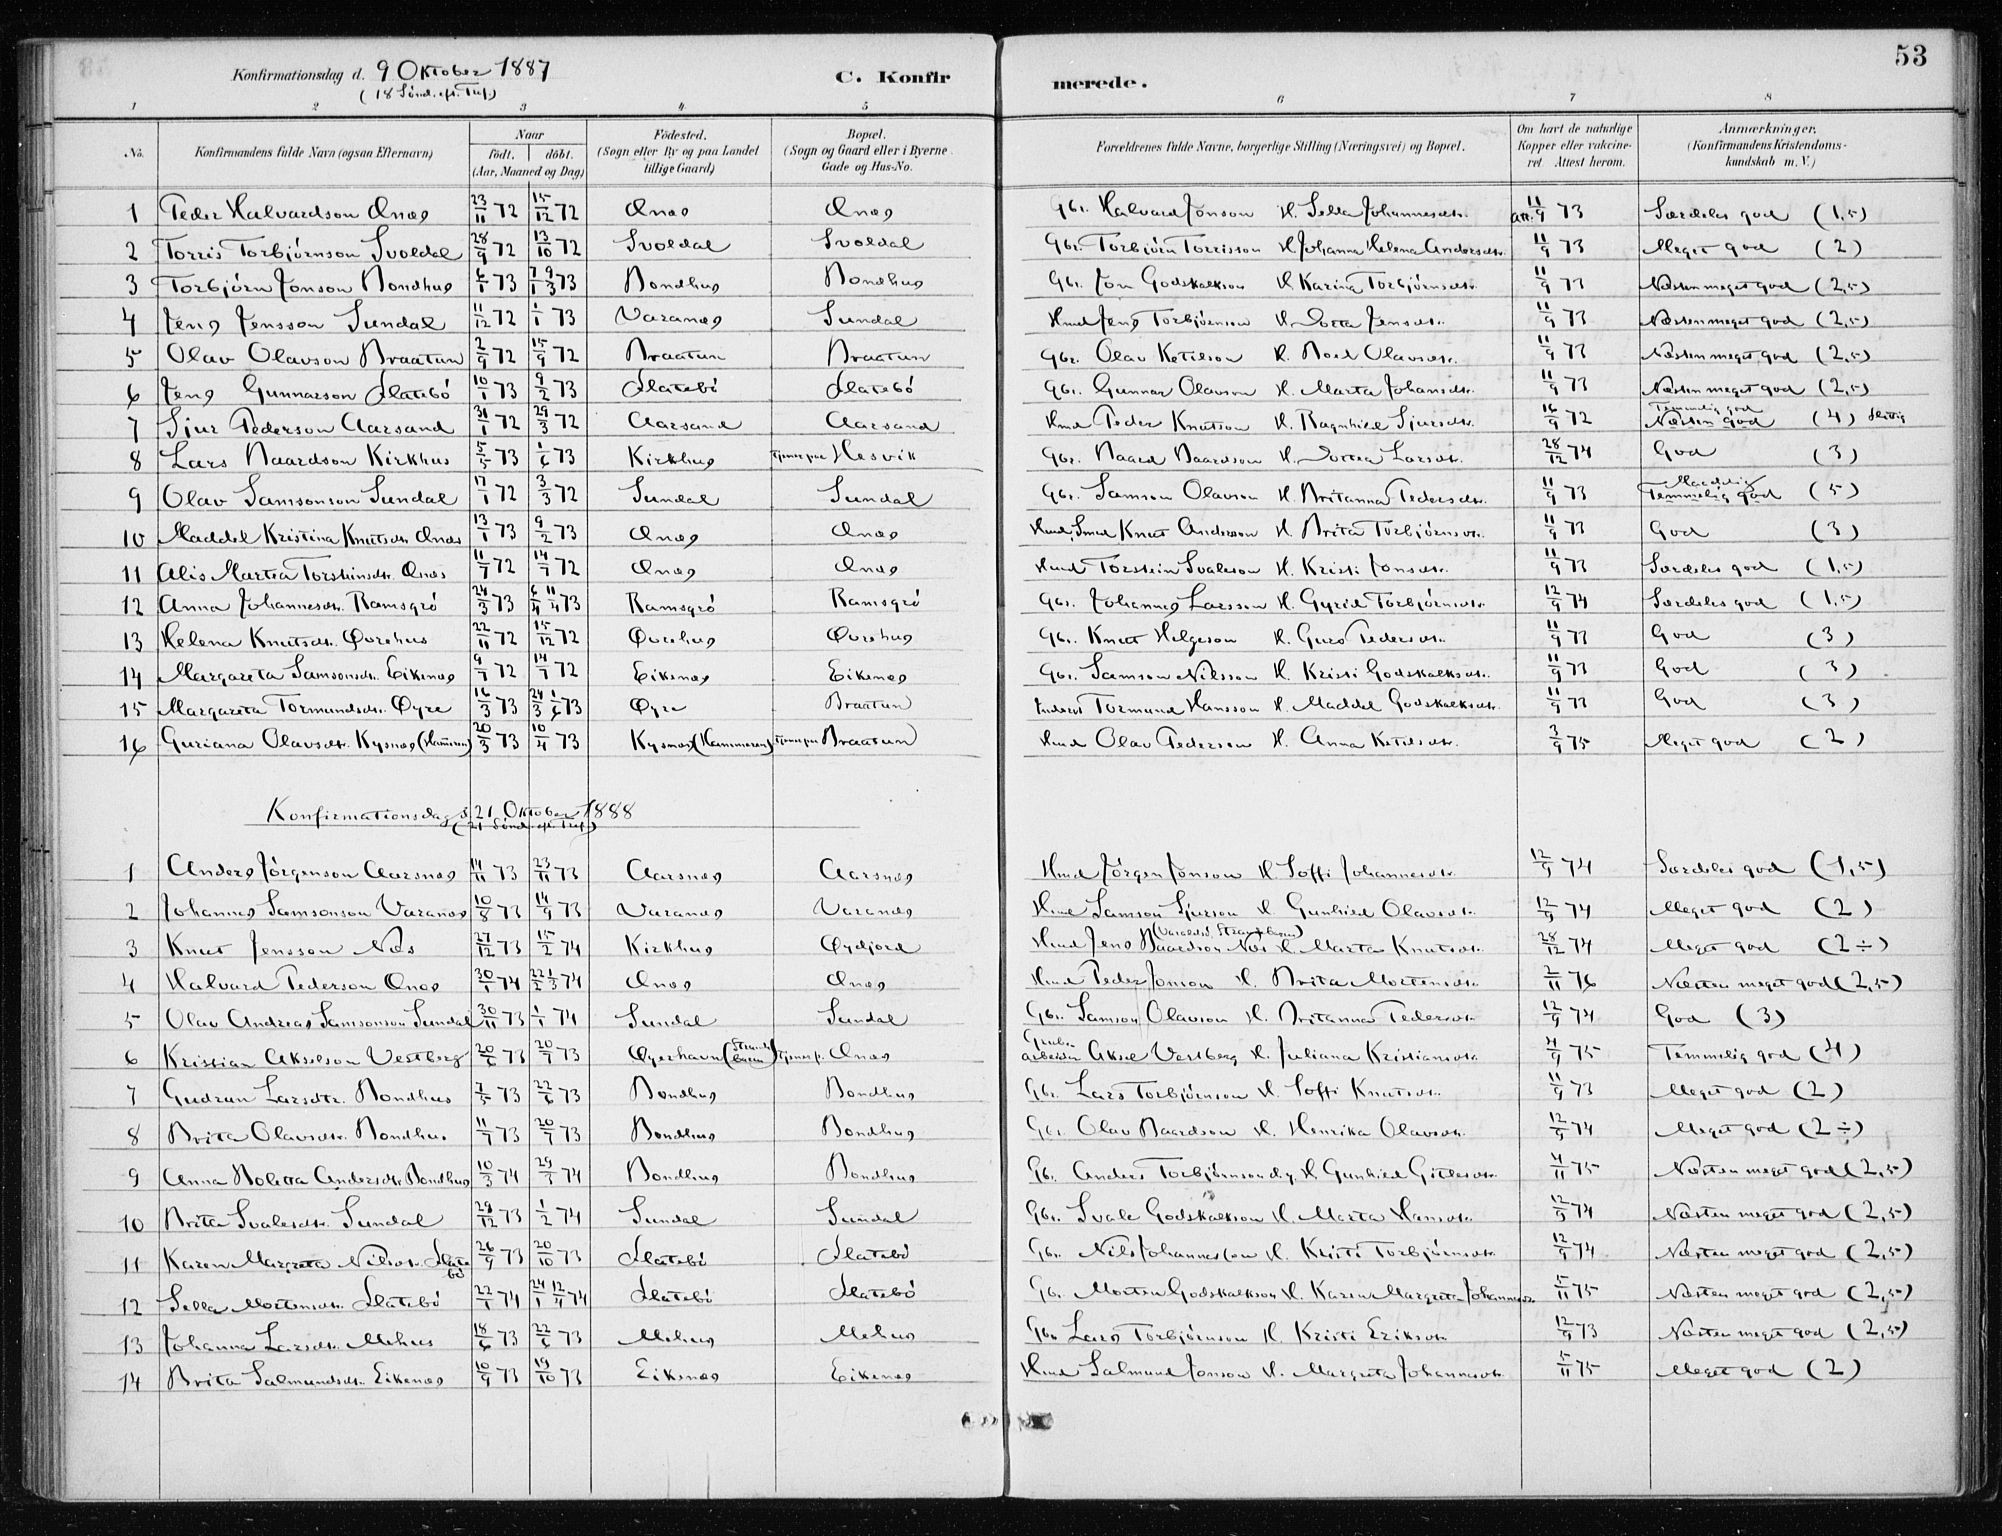 53
Konfirmationsdag d. 9 Oktober 1887 C. Konfirmerede.
(18 Sönd. eft. Tref.)
1 2 3 4 5 6 7 8
No. Konfirmandens fulde Navn (ogsaa Efternavn) Naar födt. döbt. (Aar, Maaned og Dag) Födested. (Sogn eller By og paa Landet tillige Gaard) Bopæl. (Sogn og Gaard eller i Byerne Gade og Hus-No. Forældrenes fulde Navne, borgerlige Stilling (Næringsvei) og Bopæl. Om havt de naturlige Kopper eller vaccineret Attest herom. Anmærkninger. (Konfirmandens Kristendomskundskab m. V.)
1 Peder Halvardson Ænæs 23/11 72 15/12 72 Ænæs Ænæs Gbr. Halvard Jonson H. Sella Johannesdtr. att. 11/9 73 Særdeles god (1,5)
2 Torris Torbjörnson Svoldal 28/9 72 13/10 72 Svoldal Svoldal Gbr. Torbjörn Torrisson H. Johanna Helena Andersdtr. 11/9 73 Meget god (2)
3 Torbjörn Jonson Bondhus 6/1 73 7/1 9/3 73 Bondhus Bondhus Gbr. Jon Godskalkson H. Karina Torbjörnsdtr. 11/9 73 Næsten meget god (2,5)
4 Jens Jensson Sundal 11/12 72 1/1 73 Varanæs Sundal Hmd Jens Torbjörnson H. Jensdtr. 11/9 73 Næsten meget god (2,5)
5 Olav Olavson Braatun 2/9 72 15/9 72 Braatun Braatun Gbr. Olav Ketilson H. Boel Olavsdtr. 11/9 73 Næsten meget god (2,5)
6 Jens Gunnarson Flatebö 10/1 73 9/2 73 Flatebö Flatebö Gbr. Gunnar Olavson H. Marta Johansdtr. 11/9 73 Næsten meget god (2,5)
7 Sjur Pederson Aarsand 31/1 72 29/3 72 Aarsand Aarsand Hmd Peder Knutson H. Ragnhild Sjursdtr. 16/9 72 Temmelig god Næsten god (4) flittig
8 Lars Baardson Kirkhus 5/5 73 1/6 73 Kirkhus tjener paa Hesvik Gbr. Baard Baardson H. Larsdtr. 28/12 74 God (3)
9 Olav Samsonson Sundal 17/1 72 3/3 72 Sundal Sundal Gbr. Samson Olavson H. Britanna Pedersdtr. 11/9 73 Maadelig Temmelig god (5)
10 Maddel Kristina Knutsdtr. Ænæs 13/1 73 9/2 73 Ænæs Ænæs Hmd, Smed Knut Anderson H. Brita Torbjörnsdtr. 11/9 73 God (3)
11 Alis Martea Torsteinsdtr. Ænæs 11/7 72 14/7 72 Ænæs Ænæs Hmd Torstein Svaleson H. Kristi Jonsdtr. 11/9 73 Særdeles god (1,5)
12 Anna Johannesdtr. Ramsgrö 24/3 73 6/4 11/4 73 Ramsgrö Ramsgrö Gbr. Johannes Larsson H. Gyrid Torbjörnsdtr. 12/9 74 Særdeles god (1,5)
13 Helena Knutsdtr. Övrehus 22/11 72 15/12 72 Övrehus Övrehus Gbr. Knut Helgeson H. Guro Pedersdtr. 11/9 73 God (3)
14 Margareta Samsonsdtr. Eikenæs 9/7 72 14/7 72 Eikenæs Eikenæs Gbr. Samson Nilsson H. Kristi Godskalksdtr. 11/9 73 God (3)
15 Margareta Tormundsdtr. Öyre 16/3 73 24/3 1/6 73 Öyre Braatun Inderst Tormund Hansson H. Maddel Godskalksdtr. 11/9 73 God (3)
16 Guriana Olavsdtr. Kysnæs (Hamren) 20/3 73 10/4 73 Kysnæs (Hammeren) tjener paa Braatun Hmd Olav Pederson H. Anna Ketilsdtr. 3/9 75 Meget god (2)
Konfirmationsdag d. 21 Oktober 1888
(21 Sönd. eft. Tref.)
1 Anders Jörgenson Aarsnæs 14/11 73 23/11 73 Aarsnæs Aarsnæs Hmd Jörgen Jonson H. Soffi Johannesdtr. 12/9 74 Særdeles god (1,5)
2 Johannes Samsonson Varanæs 10/8 73 14/9 73 Varanæs Varanæs Hmd Samson Sjurson H. Gunhild Olavsdtr. 12/9 74 Meget god (2)
3 Knut Jensson Næs 27/12 73 15/2 74 Kirkhus Öydjord Hmd Jens Baardson Næs (Varaldsö, Strandebarm) H. Marta Knutsdtr. 28/12 74 Meget god (2÷)
4 Halvard Pederson Ænæs 30/1 74 22/2 1/3 74 Ænæs Ænæs Hmd Peder Jonson H. Brita Mortensdtr. 2/11 76 Næsten meget god (2,5)
5 Olav Andreas Samsonson Sundal 30/11 73 1/1 74 Sundal Sundal Gbr. Samson Olavson H. Britanna Pedersdtr. 12/9 74 God (3)
6 Kristian Akselson Vestberg 20/6 73 20/7 73 Öyerhavn (Strandebarm) tjener p. Ænæs Grubearbeider Aksel Vestberg H. Juliana Kristiansdtr. 4/9 75 Temmelig god (4)
7 Gudrun Larsdtr. Bondhus 7/5 73 22/6 73 Bondhus Bondhus Gbr. Lars Torbjörnson H. Soffi Knutsdtr. 11/9 73 Meget god (2)
8 Brita Olavsdtr. Bondhus 11/7 73 20/7 73 Bondhus Bondhus Gbr. Olav Baardson H. Henrika Olavsdtr. 12/9 74 Meget god (2÷)
9 Anna Boletta Andersdtr. Bondhus 10/3 74 29/3 74 Bondhus Bondhus Gbr. Anders Torbjörnson d.y. H. Gunhild Gitlesdtr. 4/11 75 Næsten meget god (2,5)
10 Brita Svalesdtr. Sundal 29/12 73 1/2 74 Sundal Sundal Gbr. Svale Godskalkson H. Marta Hansdtr. 12/9 74 Næsten meget god (2,5)
11 Karen Margreta Nilsdtr. Flatebö 26/9 73 20/10 73 Flatebö Flatebö Gbr. Nils Johannesson H. Kristi Torbjörnsdtr. 12/9 74 Næsten meget god (2,5)
12 Sella Mortensdtr. Flatebö 22/1 74 24/1 12/4 74 Flatebö Flatebö Gbr. Morten Godskalkson H. Karen Margreta Johannesdtr. 5/11 75 Næsten meget god (2,5)
13 Johanna Larsdtr. Mehus 18/6 73 22/6 73 Mehus Mehus Gbr. Lars Torbjörnson H. Kristi Eriksdtr. 12/9 73 Næsten meget god (2,5)
14 Brita Salmundsdtr. Eikenæs 10/9 73 19/10 73 Eikenæs Eikenæs Hmd Salmund Jonson H. Margreta Johannesdtr. 5/11 75 Meget god (2)